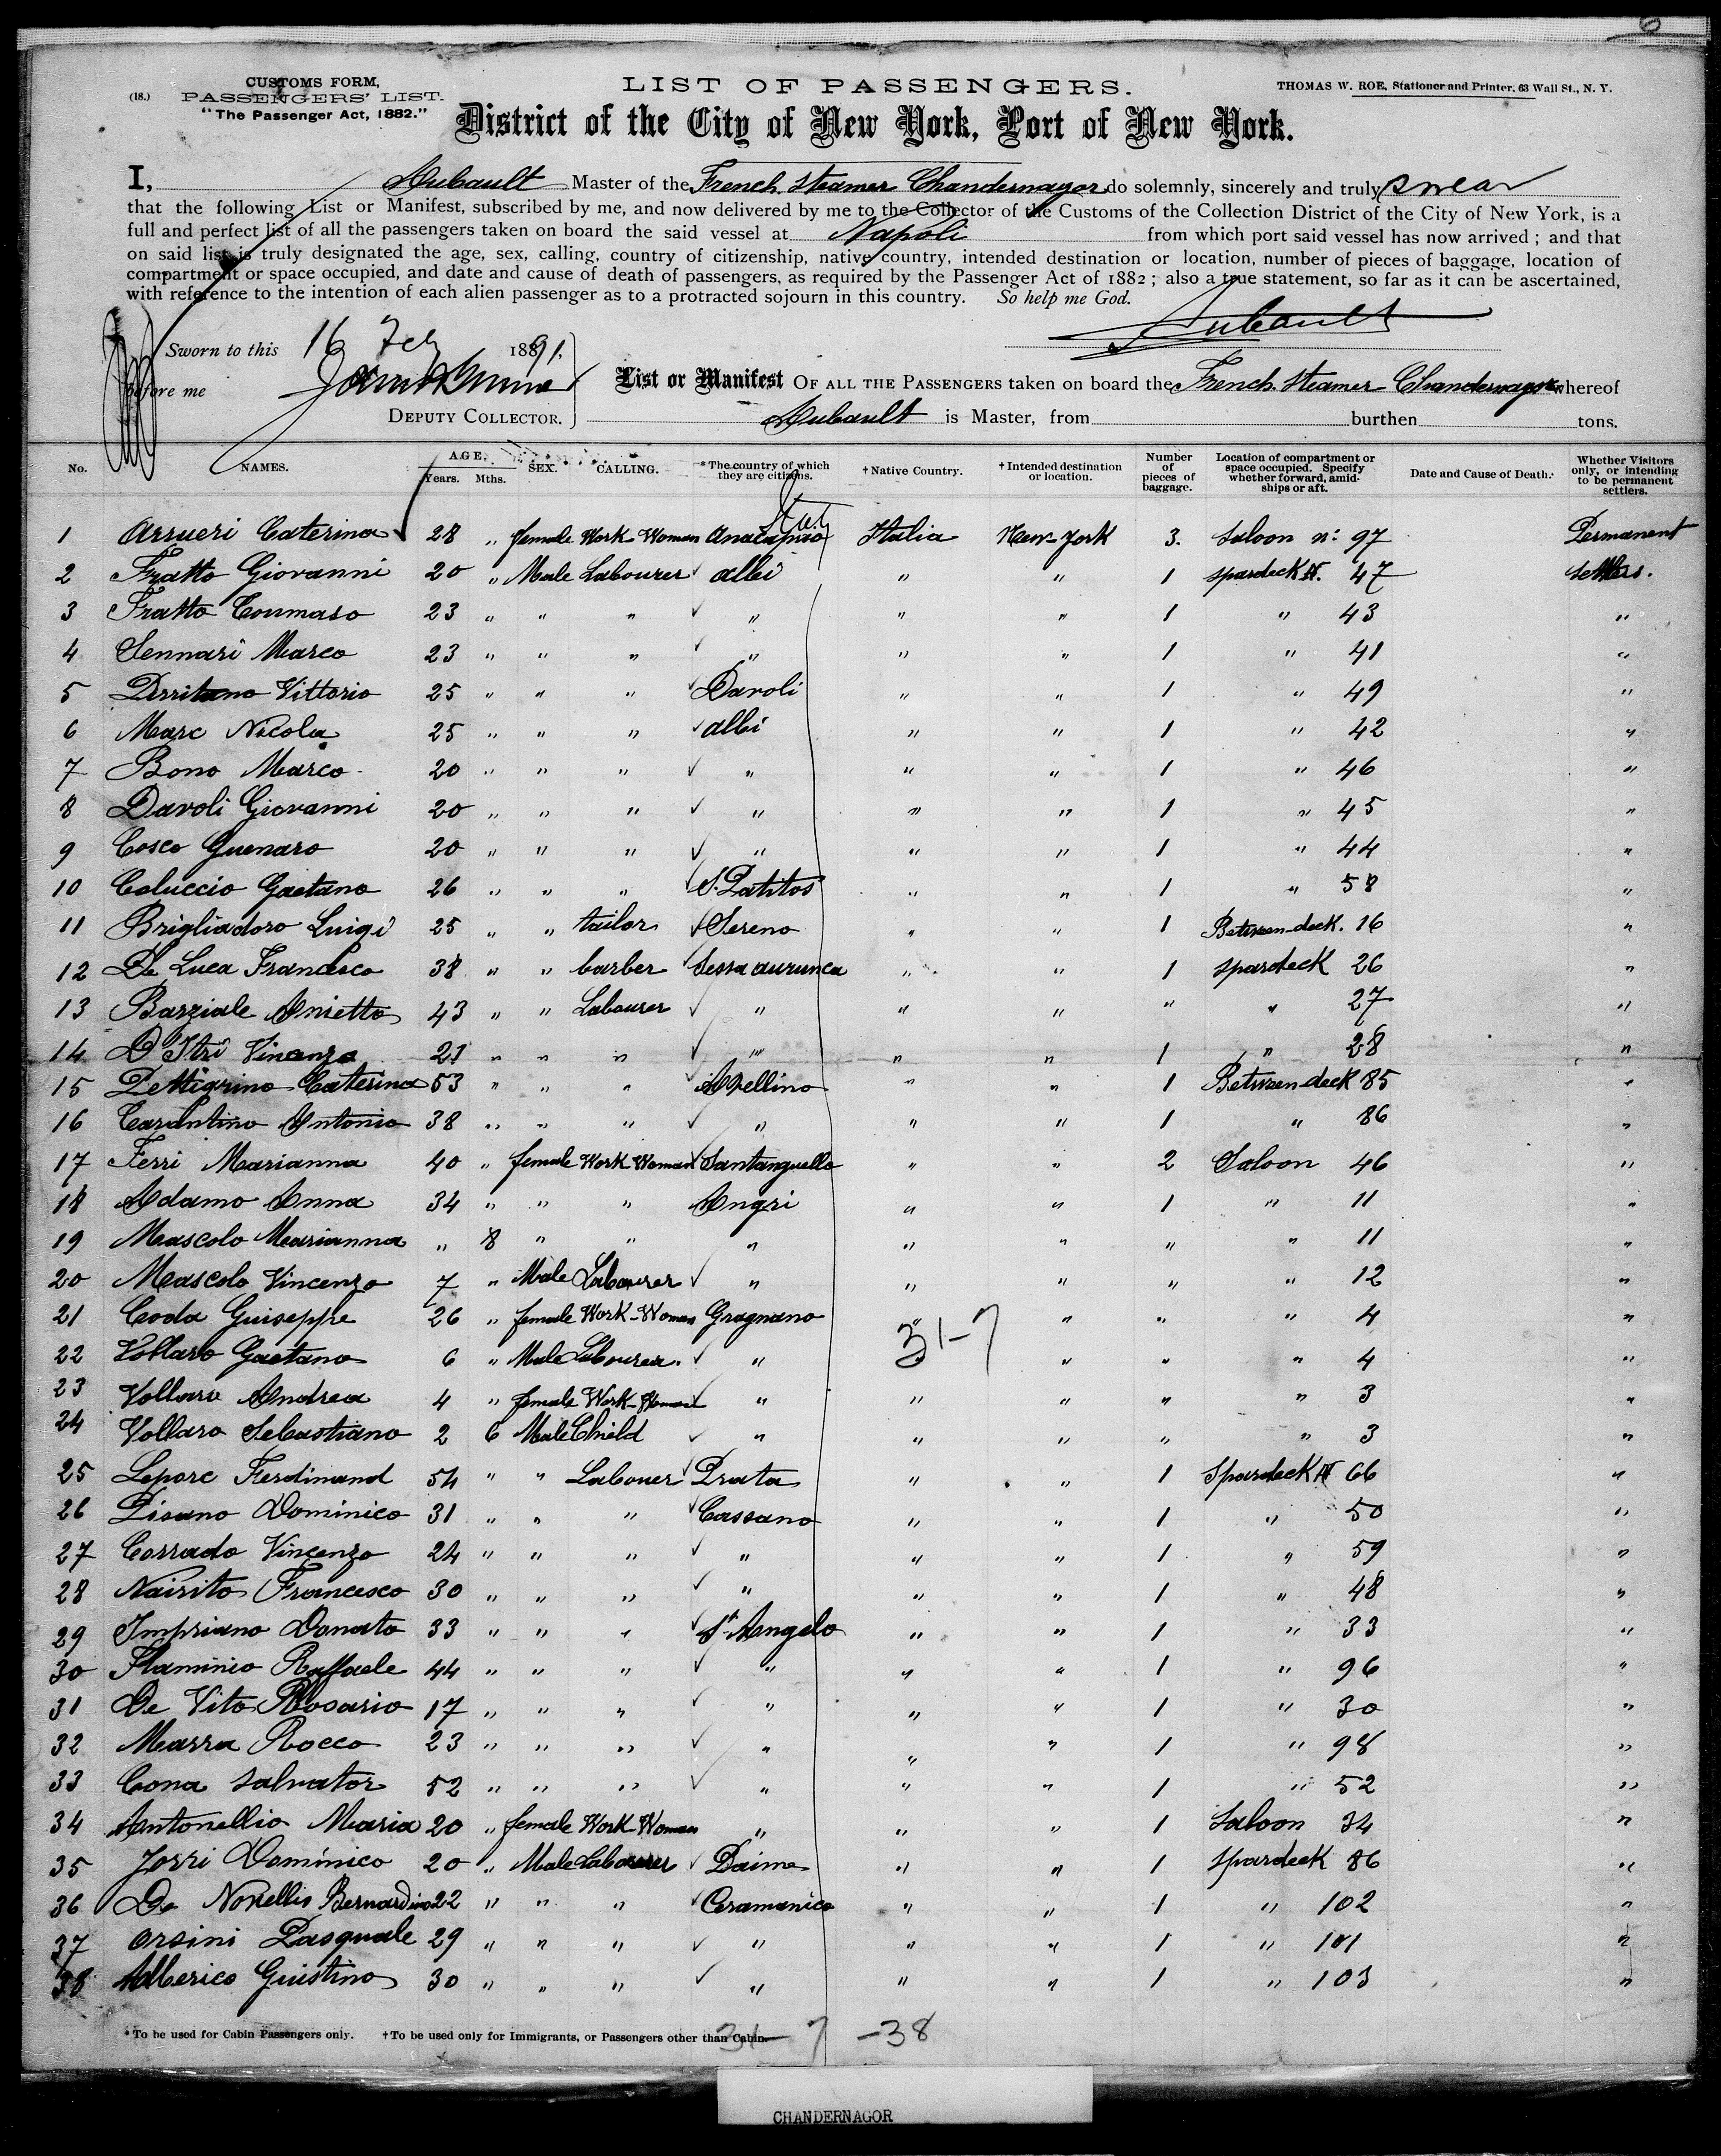 CUSTOMS FORM,
(18.) PASSENGERS' LIST.
"The Passenger Act, 1882."
LIST OF PASSENGERS.
THOMAS W. ROE, Stationer and Printer, 63 Wall St., N. Y.
District of the City of New York, Port of New York.
I, Aubault Master of the French Steamer Chandernagor do solemnly, sincerely and truly swear
that the following List or Manifest, subscribed by me, and now delivered by me to the Collector of the Customs of the Collection District of the City of New York, is a
full and perfect list of all the passengers taken on board the said vessel at Napoli from which port said vessel has now arrived ; and that
on said list is truly designated the age, sex, calling, country of citizenship, native country, intended destination or location, number of pieces of baggage, location of
compartment or space occupied, and date and cause of death of passengers, as required by the Passenger Act of 1882 ; also a true statement, so far as it can be ascertained,
with reference to the intention of each alien passenger as to a protracted sojourn in this country. So help me God.
Aubault
Sworn to this 16 Feb 1891.
before me
DEPUTY COLLECTOR.
List or Manifest OF ALL THE PASSENGERS taken on board the French Steamer Chandernagor whereof
Aubault is Master, from burthen tons.
No. NAMES. AGE. Years. Mths. SEX. CALLING. *The country of which they are citizens. †Native Country. †Intended destination or location. Number of pieces of baggage. Location of compartment or space occupied. Specify whether forward, amidships or aft. Date and Cause of Death. Whether Visitors only, or intending to be permanent settlers.
1 Arrueri Caterina 28 " female Work Woman Anacapri Italia New-York 3. Saloon n: 97 Permanent
2 Fratto Giovanni 20 " Male Labourer albi " " 1 spardeck 47 settlers.
3 Fratto Tommaso 23 " " " " " " 1 " 43 "
4 Sennari Marco 23 " " " " " " 1 " 41 "
5 Vittorio 25 " " " Davoli " " 1 " 49 "
6 Marc Nicola 25 " " " albi " " 1 " 42 "
7 Bono Marco 20 " " " " " " 1 " 46 "
8 Davoli Giovanni 20 " " " " " " 1 " 45 "
9 Cosco Guenaro 20 " " " " " " 1 " 44 "
10 Coluccio Gaetano 26 " " " S. Patitos " " 1 " 58 "
11 Brigliadoro Luigi 25 " " tailor Sereno " " 1 Between-deck. 16 "
12 De Luca Francesco 38 " " barber Sessa aurunca " " 1 spardeck 26 "
13 Barziale Anietto 43 " " Labourer " " " " " 27 "
14 D'Itri Vincenzo 21 " " " " " " 1 " 28 "
15 Pettigrino Caterina 53 " " " Avellino " " 1 Between-deck 85 "
16 Tarantino Antonio 38 " " " " " " 1 " 86 "
17 Ferri Marianna 40 " female Work Woman Santanguello " " 2 Saloon 46 "
18 Adamo Anna 34 " " " Angri " " 1 " 11 "
19 Mascolo Marianna " 8 " " " " " " " 11 "
20 Mascolo Vincenzo 7 " Male Labourer " " " " " 12 "
21 Coda Guiseppe 26 " female Work-Woman Gragnano " " " " 4 "
31-7
22 Vollaro Gaetano 6 " Male Labourer. " " " " 4 "
23 Vollaro Andrea 4 " female Work-Woman " " " " " 3 "
24 Vollaro Sebastiano 2 6 Male Child " " " " " 3 "
25 Lepore Ferdinand 54 " " Labouer Prata " " 1 Spardeck 66 "
26 Pisano Dominico 31 " " " Cassano " " 1 " 50 "
27 Corrado Vincenzo 24 " " " " " " 1 " 59 "
28 Nairito Francesco 30 " " " " " " 1 " 48 "
29 Impriano Donato 33 " " " St Angelo " " 1 " 33 "
30 Flaminio Raffaele 44 " " " " " " 1 " 96 "
31 De Vito Rosario 17 " " " " " " 1 " 30 "
32 Marra Rocco 23 " " " " " " 1 " 98 "
33 Cona Salvator 52 " " " " " " 1 " 52 "
34 Antonellio Maria 20 " female Work-Woman " " " 1 Saloon 34 "
35 Jorri Dominico 20 " Male Labourer Daime " " 1 spardeck 86 "
36 De Novellis Bernardino 22 " " " Ceramanico " " 1 " 102 "
37 Orsini Pasquale 29 " " " " " " 1 " 101 "
38 Alberico Guistino 30 " " " " " " 1 " 103 "
*To be used for Cabin Passengers only. †To be used only for Immigrants, or Passengers other than Cabin.
31-7 -38
CHANDERNAGOR